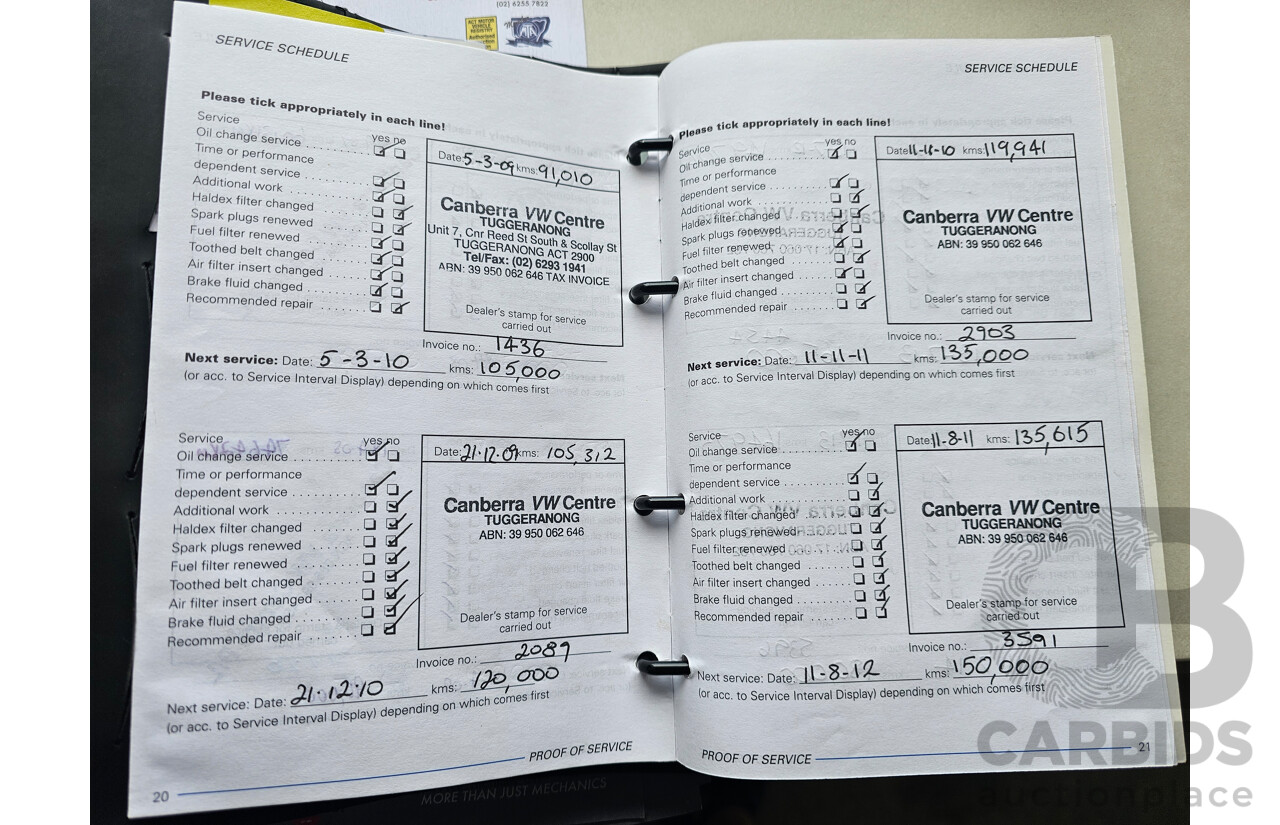 (02) 6255 7822
ACT MOTOR
VEHICLE
REGISTRY
Authorised
SERVICE SCHEDULE
Please tick appropriately in each line!
Service
yes no
Oil change service
Time or performance
dependent service
Additional work
Haldex filter changed
Spark plugs renewed
Fuel filter renewed
Toothed belt changed
Air filter insert changed
Brake fluid changed
Recommended repair
Date: 5-3-09 kms: 91,010
Canberra VW Centre
TUGGERANONG
Unit 7, Cnr Reed St South & Scollay St
TUGGERANONG ACT 2900
Tel/Fax: (02) 6293 1941
ABN: 39 950 062 646 TAX INVOICE
Dealer's stamp for service
carried out
Invoice no.: 1436
Next service: Date: 5-3-10 kms: 105,000
(or acc. to Service Interval Display) depending on which comes first
Service
yes no
Oil change service
Time or performance
dependent service
Additional work
Haldex filter changed
Spark plugs renewed
Fuel filter renewed
Toothed belt changed
Air filter insert changed
Brake fluid changed
Recommended repair
Date: 21.12.09 kms: 105,312
Canberra VW Centre
TUGGERANONG
ABN: 39 950 062 646
Dealer's stamp for service
carried out
Invoice no.: 2089
Next service: Date: 21.12.10 kms: 120,000
(or acc. to Service Interval Display) depending on which comes first
PROOF OF SERVICE
20
MORE THAN JUST MECHANICS
SERVICE SCHEDULE
Please tick appropriately in each line!
Service
yes no
Oil change service
Time or performance
dependent service
Additional work
Haldex filter changed
Spark plugs renewed
Fuel filter renewed
Toothed belt changed
Air filter insert changed
Brake fluid changed
Recommended repair
Date: 11-11-10 kms: 119,941
Canberra VW Centre
TUGGERANONG
ABN: 39 950 062 646
Dealer's stamp for service
carried out
Invoice no.: 2903
Next service: Date: 11-11-11 kms: 135,000
(or acc. to Service Interval Display) depending on which comes first
Service
yes no
Oil change service
Time or performance
dependent service
Additional work
Haldex filter changed
Spark plugs renewed
Fuel filter renewed
Toothed belt changed
Air filter insert changed
Brake fluid changed
Recommended repair
Date: 11-8-11 kms: 135,615
Canberra VW Centre
TUGGERANONG
ABN: 39 950 062 646
Dealer's stamp for service
carried out
Invoice no.: 3591
Next service: Date: 11-8-12 kms: 150,000
(or acc. to Service Interval Display) depending on which comes first
PROOF OF SERVICE
21
CARBIDS
auctionplace